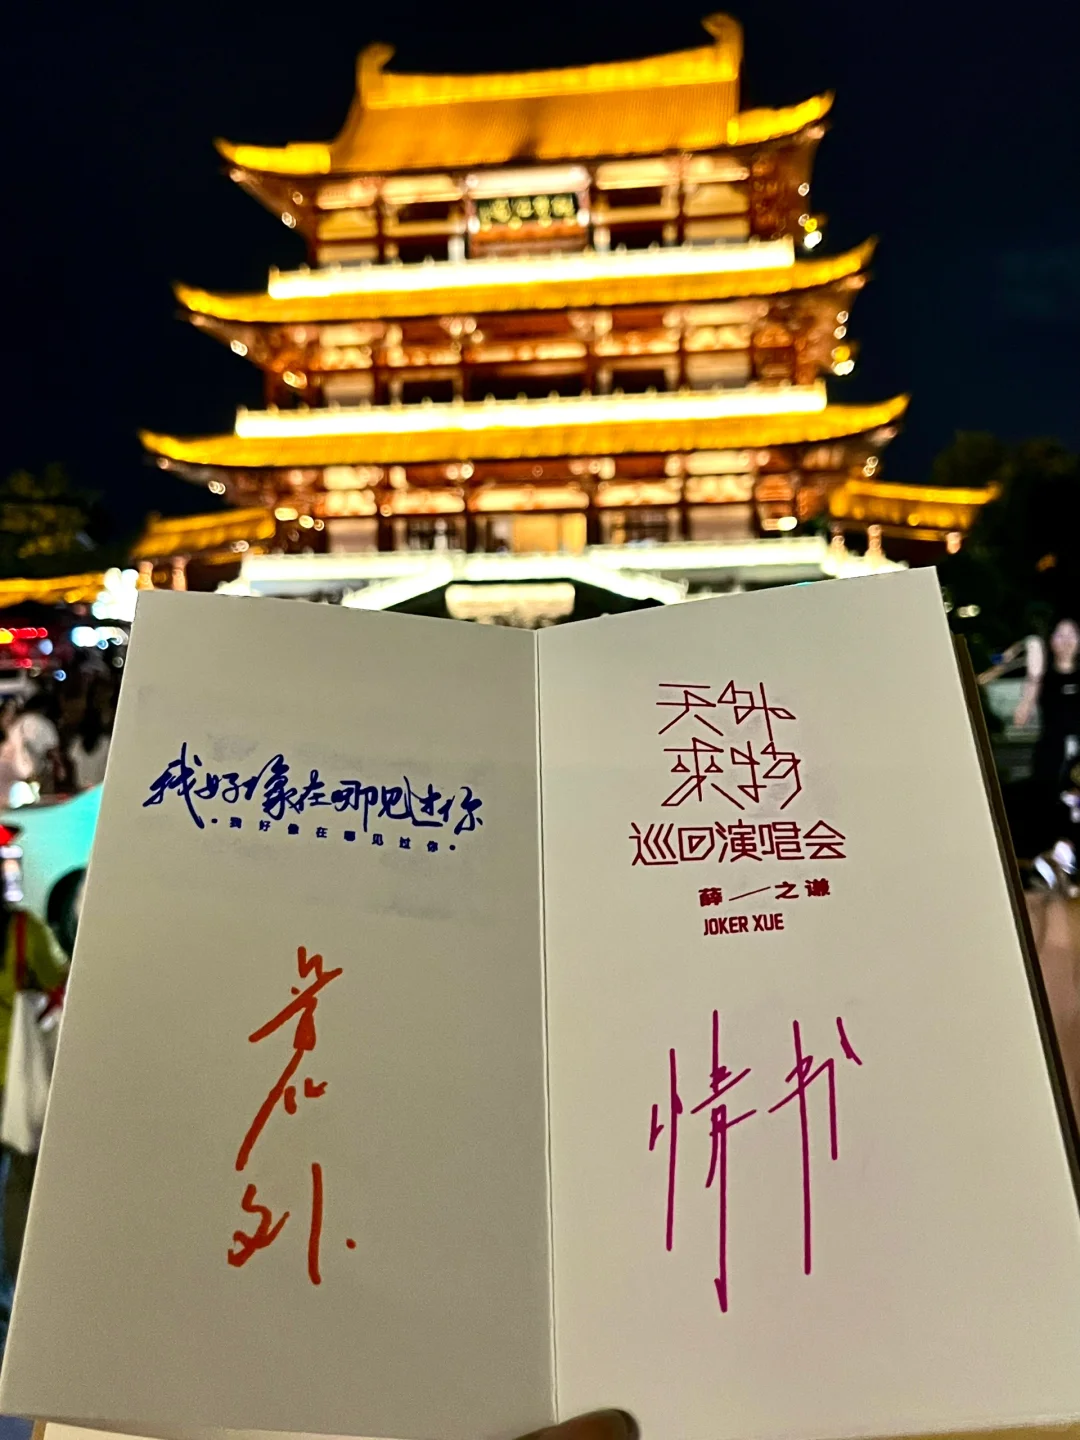 我好像在哪见过你
·我好像在哪见过你·
天外
來物
巡回演唱会
薛一之谦
JOKER XUE
情书